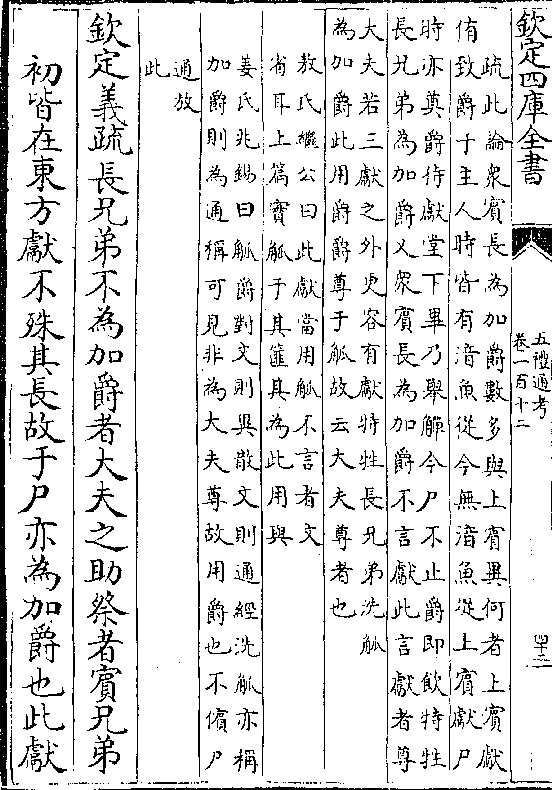 欽定四庫全書
五禮通考
卷一百十二
疏此論衆賓長為加爵數多與上賓異何者上賓獻
侑致爵于主人時皆有湆魚從今無湆魚從上賓獻尸
時亦奠爵待獻堂下畢乃舉觶今尸不止爵即飲特牲
長兄弟為加爵又衆賓長為加爵不言獻此言獻者尊
大夫若三獻之外更容有獻特牲長兄弟洗觚
為加爵此用爵爵尊于觚故云大夫尊者也
敖氏繼公曰此獻當用觚不言者文
省耳上篇實觚于其篚其為此用與
姜氏兆錫曰觚爵對文則異散文則通經洗觚亦稱
加爵則為通稱可見非為大夫尊故用爵也不儐尸
通放
此
欽定義疏長兄弟不為加爵者大夫之助祭者賓兄弟
初皆在東方獻不殊其長故于尸亦為加爵也此獻